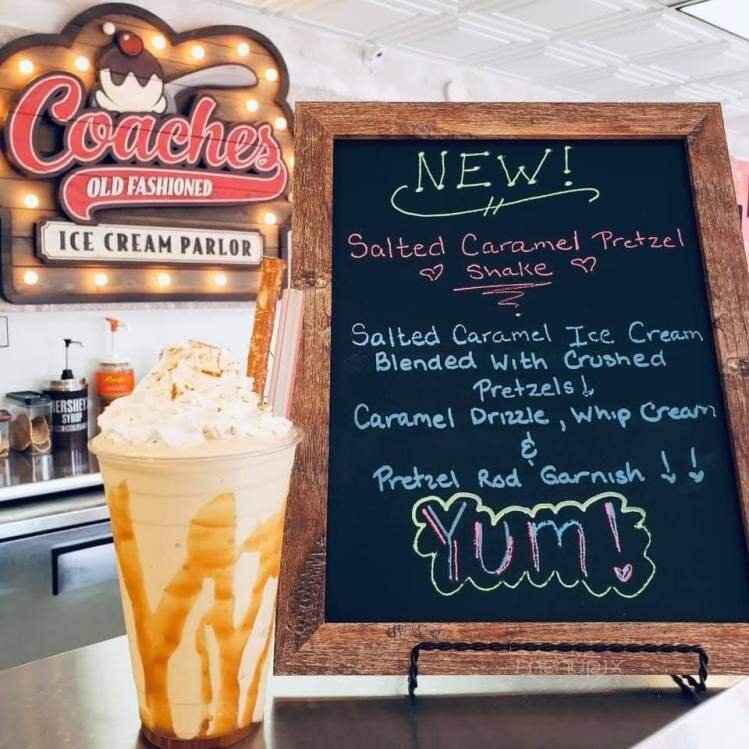 Coaches
OLD FASHIONED
ICE CREAM PARLOR
NEW!
Salted Caramel Pretzel
Shake
Salted Caramel Ice Cream
Blended With Crushed
Pretzels!
Caramel Drizzle, Whip Cream
&
Pretzel Rod Garnish !!
YUM!
HERSHEY'S
SYRUP
Reese's
menupix